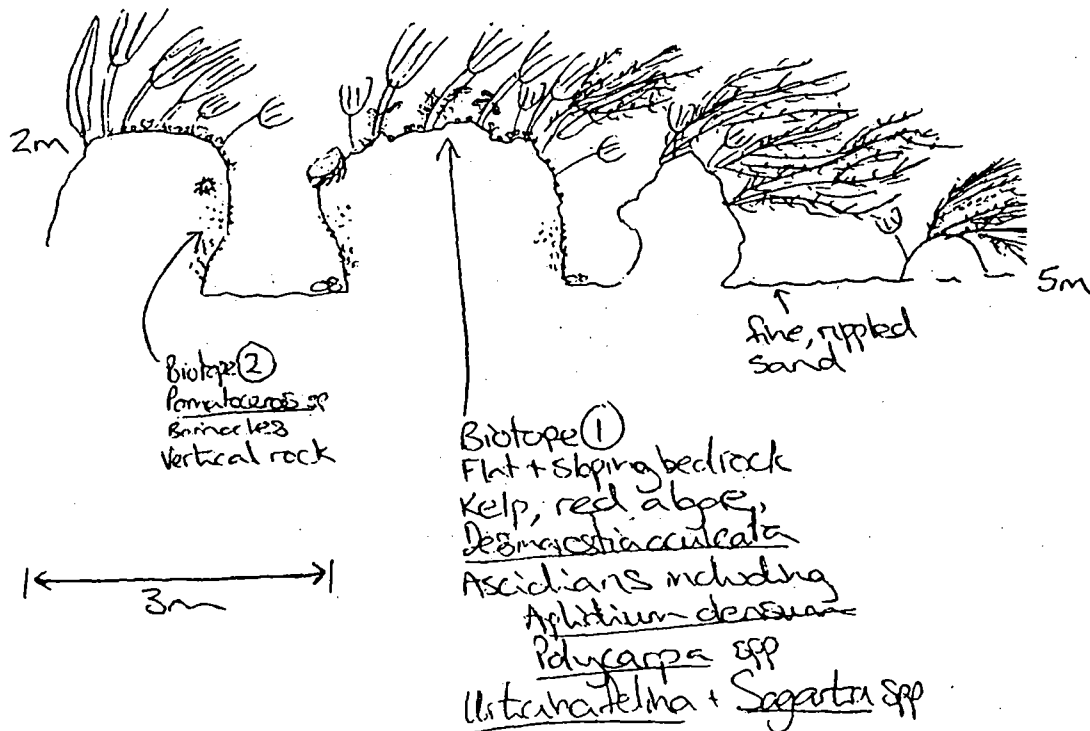 2m
5m
fine, rippled
sand
Biotope 2
Pomatoceros sp
Barnacles
Vertical rock
Biotope 1
Flat + sloping bedrock
Kelp, red algae,
Desmarestia aculeata
Ascidians including
Aplidium densum
Polycarpa spp
Urticina felina + Sagartia spp
3m